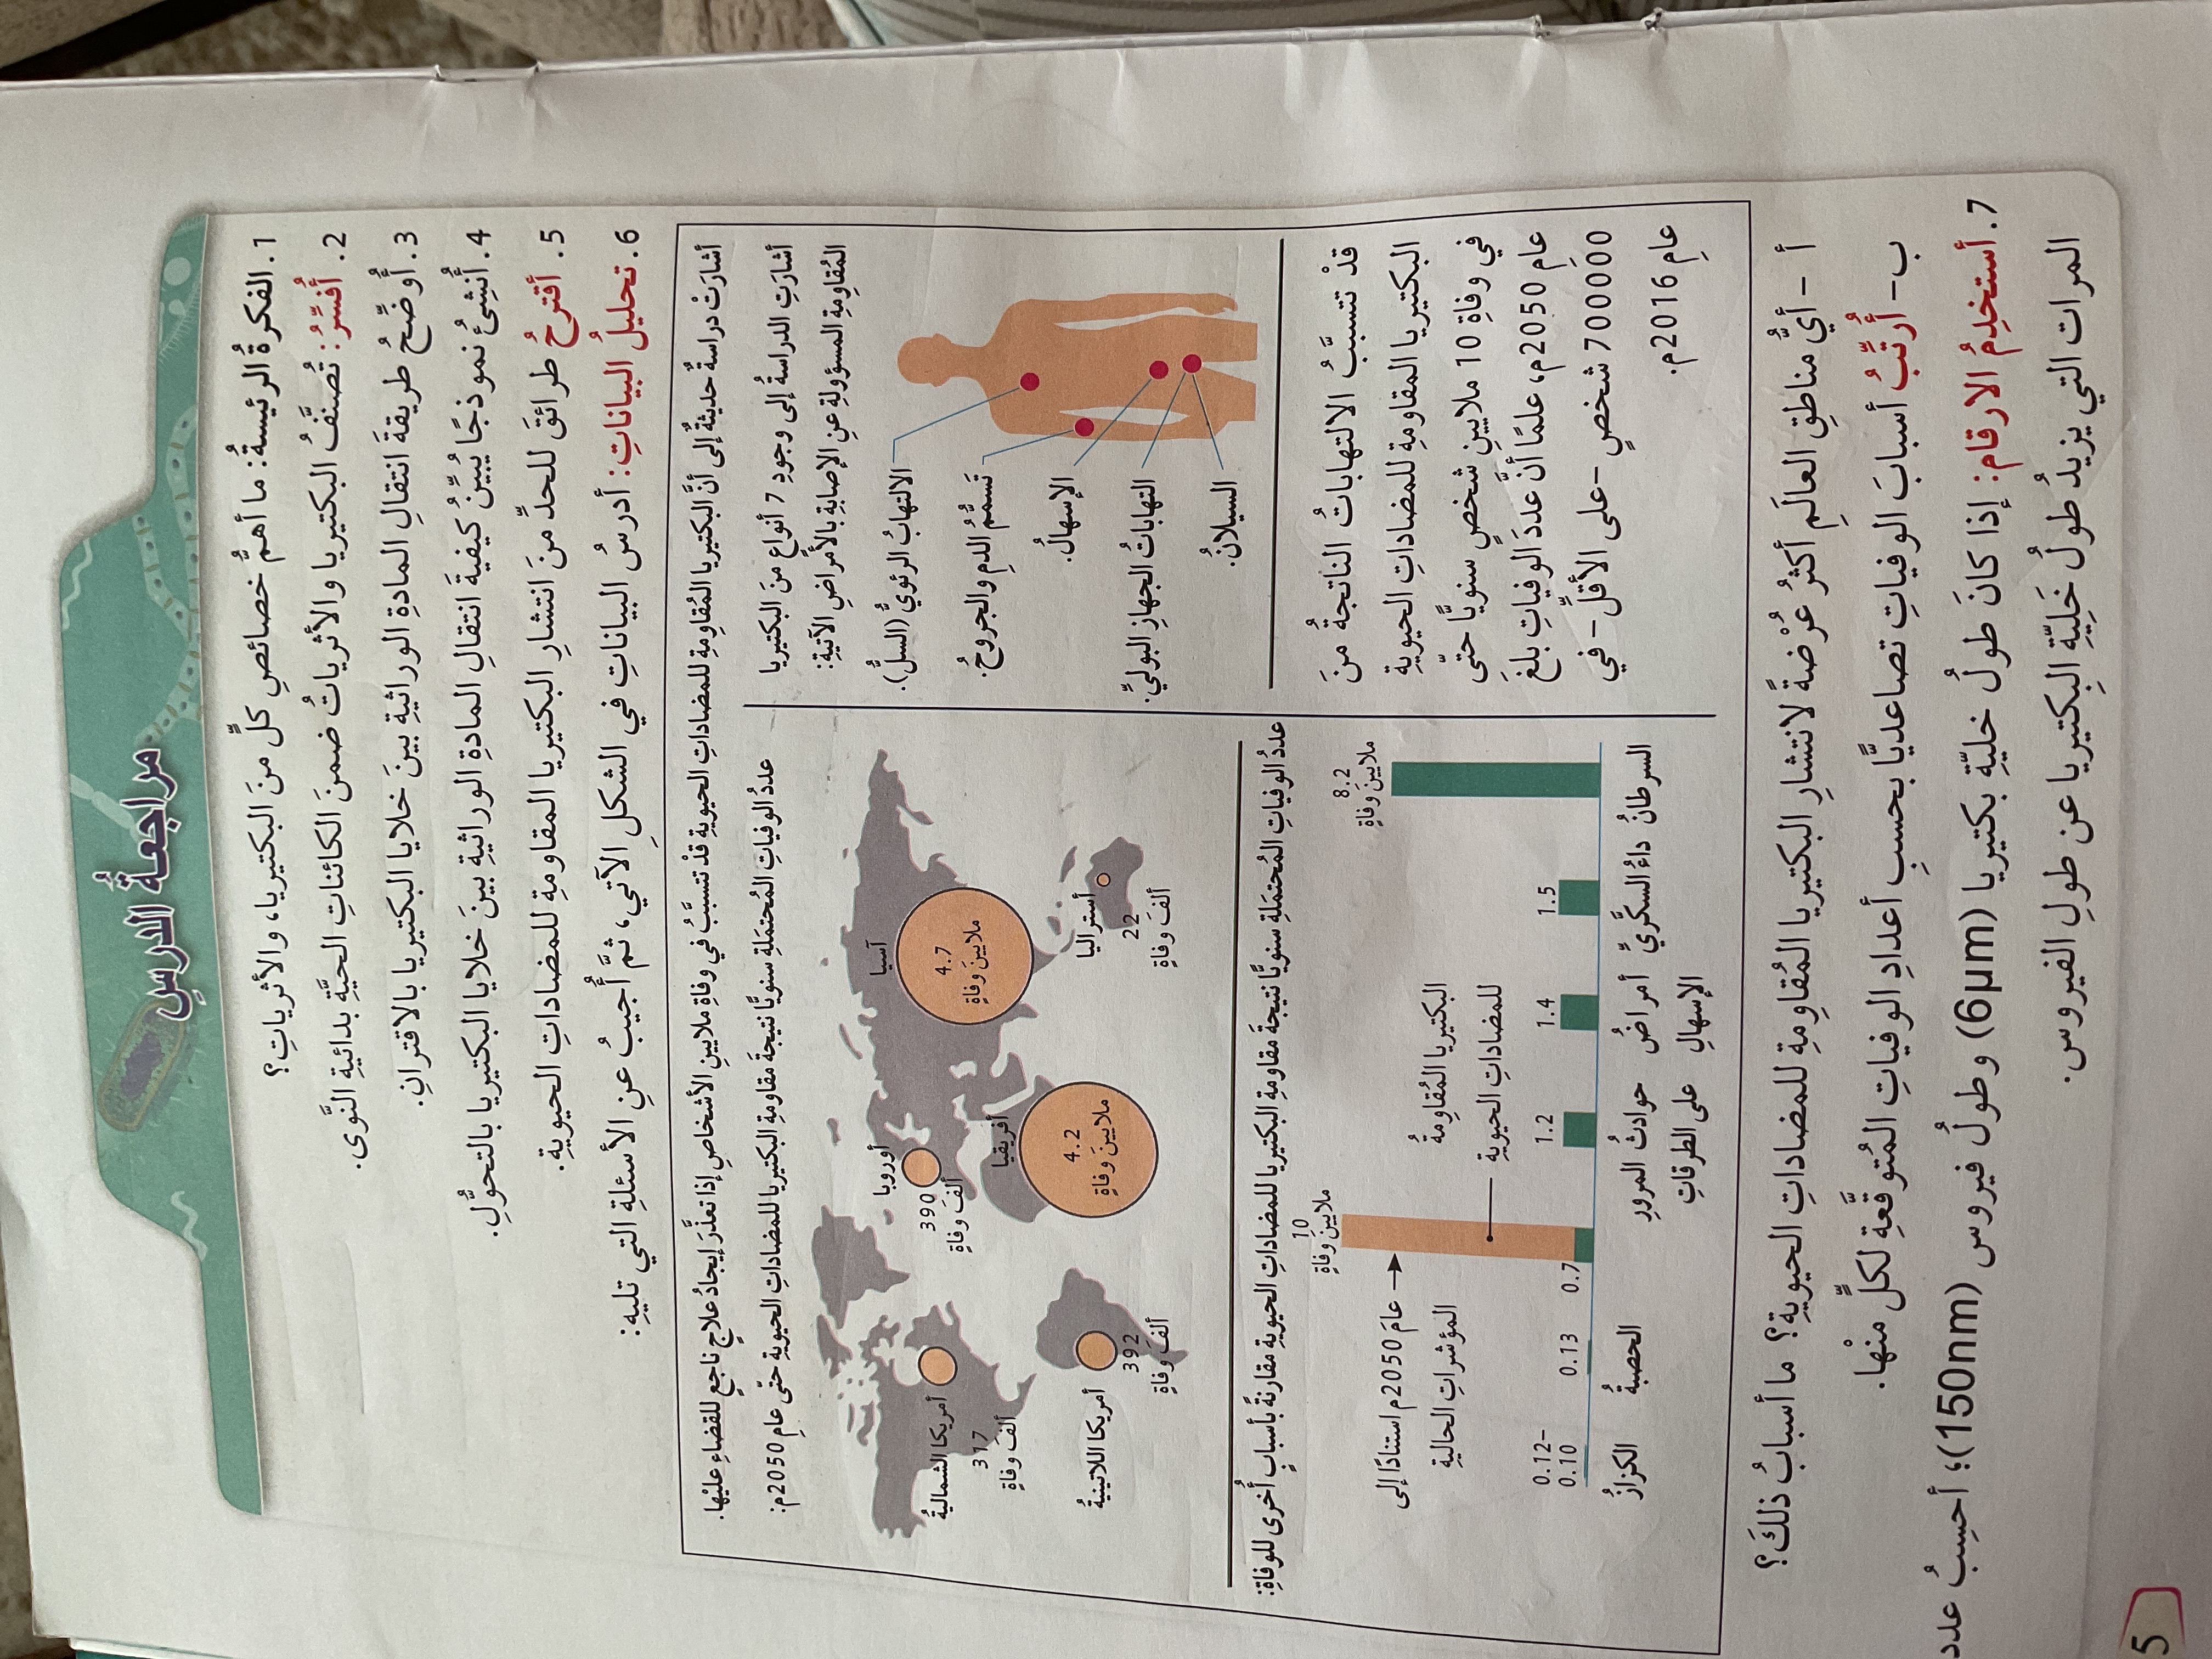 مراجعةُ الدرسِ
1. الفكرةُ الرئيسةُ: ما أهمُّ خصائصِ كلٍّ منَ البكتيريا، والأثرياتِ؟
2. أُفسِّرُ: تُصنَّفُ البكتيريا والأثرياتُ ضمنَ الكائناتِ الحيَّةِ بدائيةِ النَّوى.
3. أُوضِّحُ طريقةَ انتقالِ المادةِ الوراثيةِ بينَ خلايا البكتيريا بالاقترانِ.
4. أُنشِئُ نموذجًا يُبيِّنُ كيفيةَ انتقالِ المادةِ الوراثيةِ بينَ خلايا البكتيريا بالتحوُّلِ.
5. أقترحُ طرائقَ للحدِّ منَ انتشارِ البكتيريا المقاومةِ للمضاداتِ الحيويةِ.
6. تحليلُ البياناتِ: أدرسُ البياناتِ في الشكلِ الآتي، ثمَّ أُجيبُ عنِ الأسئلةِ التي تليهِ:
أشارَتْ دراسةٌ حديثةٌ إلى أنَّ البكتيريا المُقاوِمةِ للمضاداتِ الحيويةِ قدْ تتسبَّبُ في وفاةِ ملايينِ الأشخاصِ إذا تعذَّرَ إيجادُ علاجٍ ناجعٍ للقضاءِ عليْها.
أشارَتِ الدراسةُ إلى وجودِ 7 أنواعٍ منَ البكتيريا
المُقاوِمةِ المسؤولةِ عنِ الإصابةِ بالأمراضِ الآتيةِ:
الالتهابُ الرئويُّ (السلُّ).
تَسمُّمُ الدمِ والجروحُ.
الإسهالُ.
التهاباتُ الجهازِ البوليِّ.
السيلانُ.
قدْ تتسبَّبُ الالتهاباتُ الناتجةُ منَ
البكتيريا المقاومةِ للمضاداتِ الحيويةِ
في وفاةِ 10 ملايينِ شخصٍ سنويًّا حتّى
عامِ 2050م، علمًا أنَّ عددَ الوفياتِ بلغَ
700000 شخصٍ -على الأقلِّ- في
عامِ 2016م.
عددُ الوفياتِ المُحتمَلةِ سنويًّا نتيجةَ مقاومةِ البكتيريا للمضاداتِ الحيويةِ حتّى عامِ 2050م:
آسيا
4.7
ملايينَ وفاةٍ
أستراليا
22
ألفَ وفاةٍ
أوروبا
390
ألفَ وفاةٍ
أفريقيا
4.2
ملايينَ وفاةٍ
أمريكا الشماليةُ
317
ألفَ وفاةٍ
أمريكا اللاتينيةُ
392
ألفَ وفاةٍ
عددُ الوفياتِ المُحتمَلةِ سنويًّا نتيجةَ مقاومةِ البكتيريا للمضاداتِ الحيويةِ مقارنةً بأسبابٍ أُخرى للوفاةِ:
8.2
ملايينَ وفاةٍ
1.5
1.4
1.2
10
ملايينَ وفاةٍ
0.7
0.13
0.12-
0.10
البكتيريا المُقاوِمةُ
للمضاداتِ الحيويةِ
عامَ 2050م استنادًا إلى
المؤشراتِ الحاليةِ
السرطانُ
داءُ السكَّريِّ
أمراضُ
الإسهالِ
حوادثُ المرورِ
على الطرقاتِ
الحصبةُ
الكزازُ
أ - أيُّ مناطقِ العالَمِ أكثرُ عُرْضةً لانتشارِ البكتيريا المُقاوِمةِ للمضاداتِ الحيويةِ؟ ما أسبابُ ذلكَ؟
ب- أُرتِّبُ أسبابَ الوفياتِ تصاعديًّا بحسبِ أعدادِ الوفياتِ المُتوقَّعةِ لكلٍّ منْها.
7. أستخدِمُ الأرقامَ: إذا كانَ طولُ خليّةِ بكتيريا (6μm) وطولُ فيروس (150nm)؛ أحسِبُ عدد
المرات التي يزيدُ طولُ خَلِيّةِ البِكتيريا عن طولِ الفيروس.
5